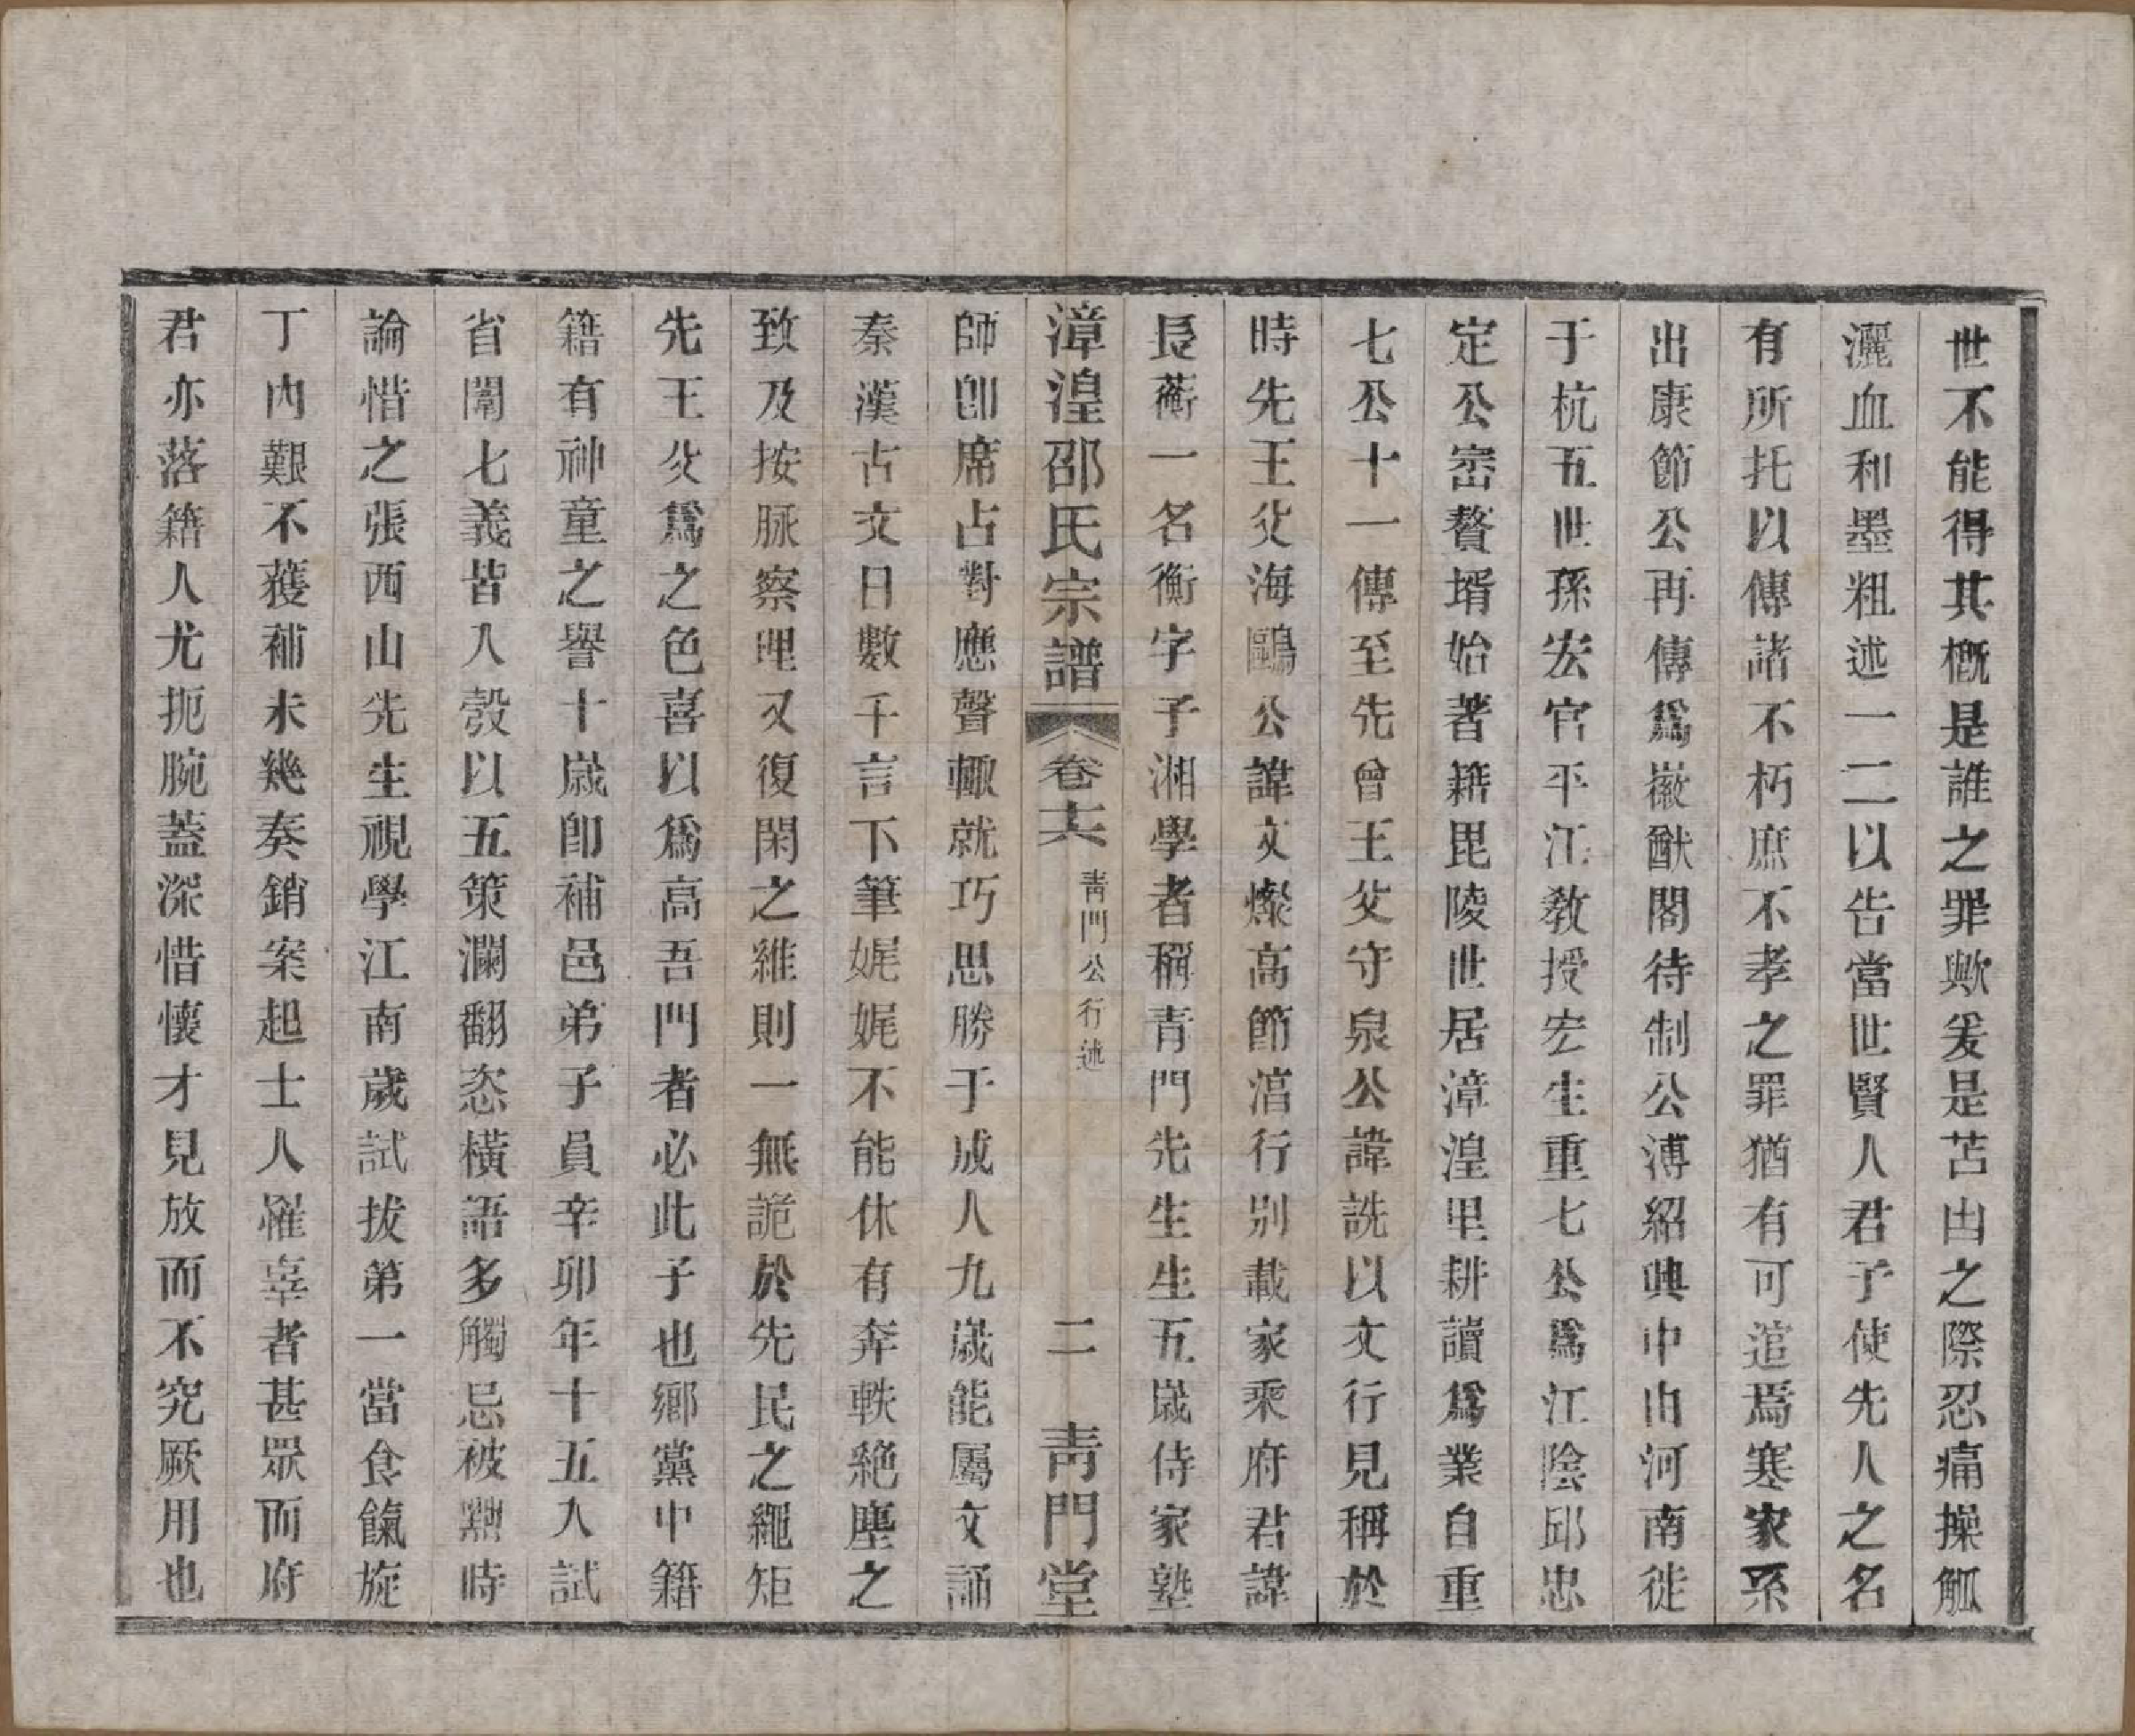 世不能得其概是誰之罪歟爰是苫凷之際忍痛操觚
灑血和墨粗述一二以告當世賢人君子使先人之名
有所托以傳諸不朽庶不孝之罪猶有可逭焉寒家系
出康節公再傳爲徽猷閣待制公溥紹興中由河南徙
于杭五世孫宏官平江教授宏生重七公爲江陰邱忠
定公崈贅壻始著籍毘陵世居漳湟里耕讀爲業自重
七公十一傳至先曾王父守泉公諱詵以文行見稱於
時先王父海鷗公諱文燦高節滈行别載家乘府君諱
長蘅一名衡字子湘學者稱青門先生生五歲侍家塾
漳湟邵氏宗譜 卷十六 靑門公行述 二 靑門堂
師卽席占對應聲輙就巧思勝于成人九歲能屬文誦
秦漢古文日數千言下筆娓娓不能休有奔軼絶塵之
致及按脉察理又復閑之維則一無詭於先民之繩矩
先王父爲之色喜以爲高吾門者必此子也鄉黨中籍
籍有神童之譽十歲卽補邑弟子員辛卯年十五入試
省闈七義皆入彀以五策瀾翻恣橫語多觸忌被黜時
論惜之張西山先生視學江南歲試拔第一當食餼旋
丁內艱不獲補未幾奏銷案起士人罹辜者甚眾而府
君亦落籍人尤扼腕蓋深惜懷才見放而不究厥用也